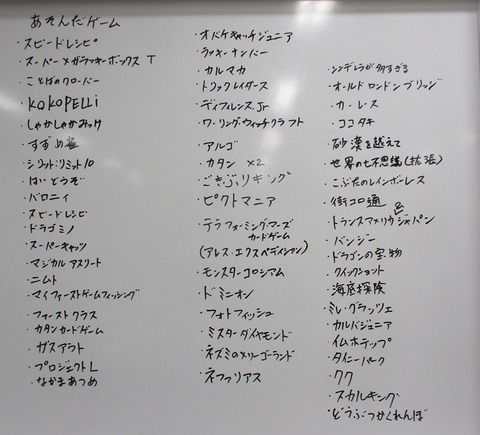 あそんだゲーム
・スピードレシピ
・スーパーメガラッキーボックス T
・ことばのクローバー
・KOKOPELLi
・しゃかしゃかみっけ
・すずめ雀
・シリットリミット10
・はいどうぞ
・バロニィ
・スピードレシピ
・ドラゴミノ
・スーパーキャッツ
・マジカルアスリート
・ニムト
・マイファーストゲームフィッシング
・ファーストクラス
・カタンカードゲーム
・ガスアウト
・プロジェクトL
・なかまあつめ
・オバケキャッチジュニア
・ラッキーナンバー
・カルマカ
・トリックレイダース
・ディフレンスJr
・ワーリングウィッチクラフト
・アルゴ
・カタン ×2
・ごきぶりキング
・ピクトマニア
・テラフォーミング・マーズ
カードゲーム
(アレス・エクスペディション)
・モンスターコロシアム
・ドミニオン
・フォトフィッシュ
・ミスターダイヤモンド
・ネズミのメリーゴーランド
・ネファリアス
・シンデレラが多すぎる
・オールドロンドンブリッジ
・カーレス
・ココタキ
・砂漠を越えて
・世界の七不思議(拡張)
・こぶたのレインボーレース
・街コロ通
・トランスアメリカ&ジャパン
・バンジー
・ドラゴンの宝物
・クイックショット
・海底探険
・ミレ・グラッツェ
・カルバジュニア
・イムホテップ
・タイニーパーク
・クク
・スカルキング
・どうぶつかくれんぼ